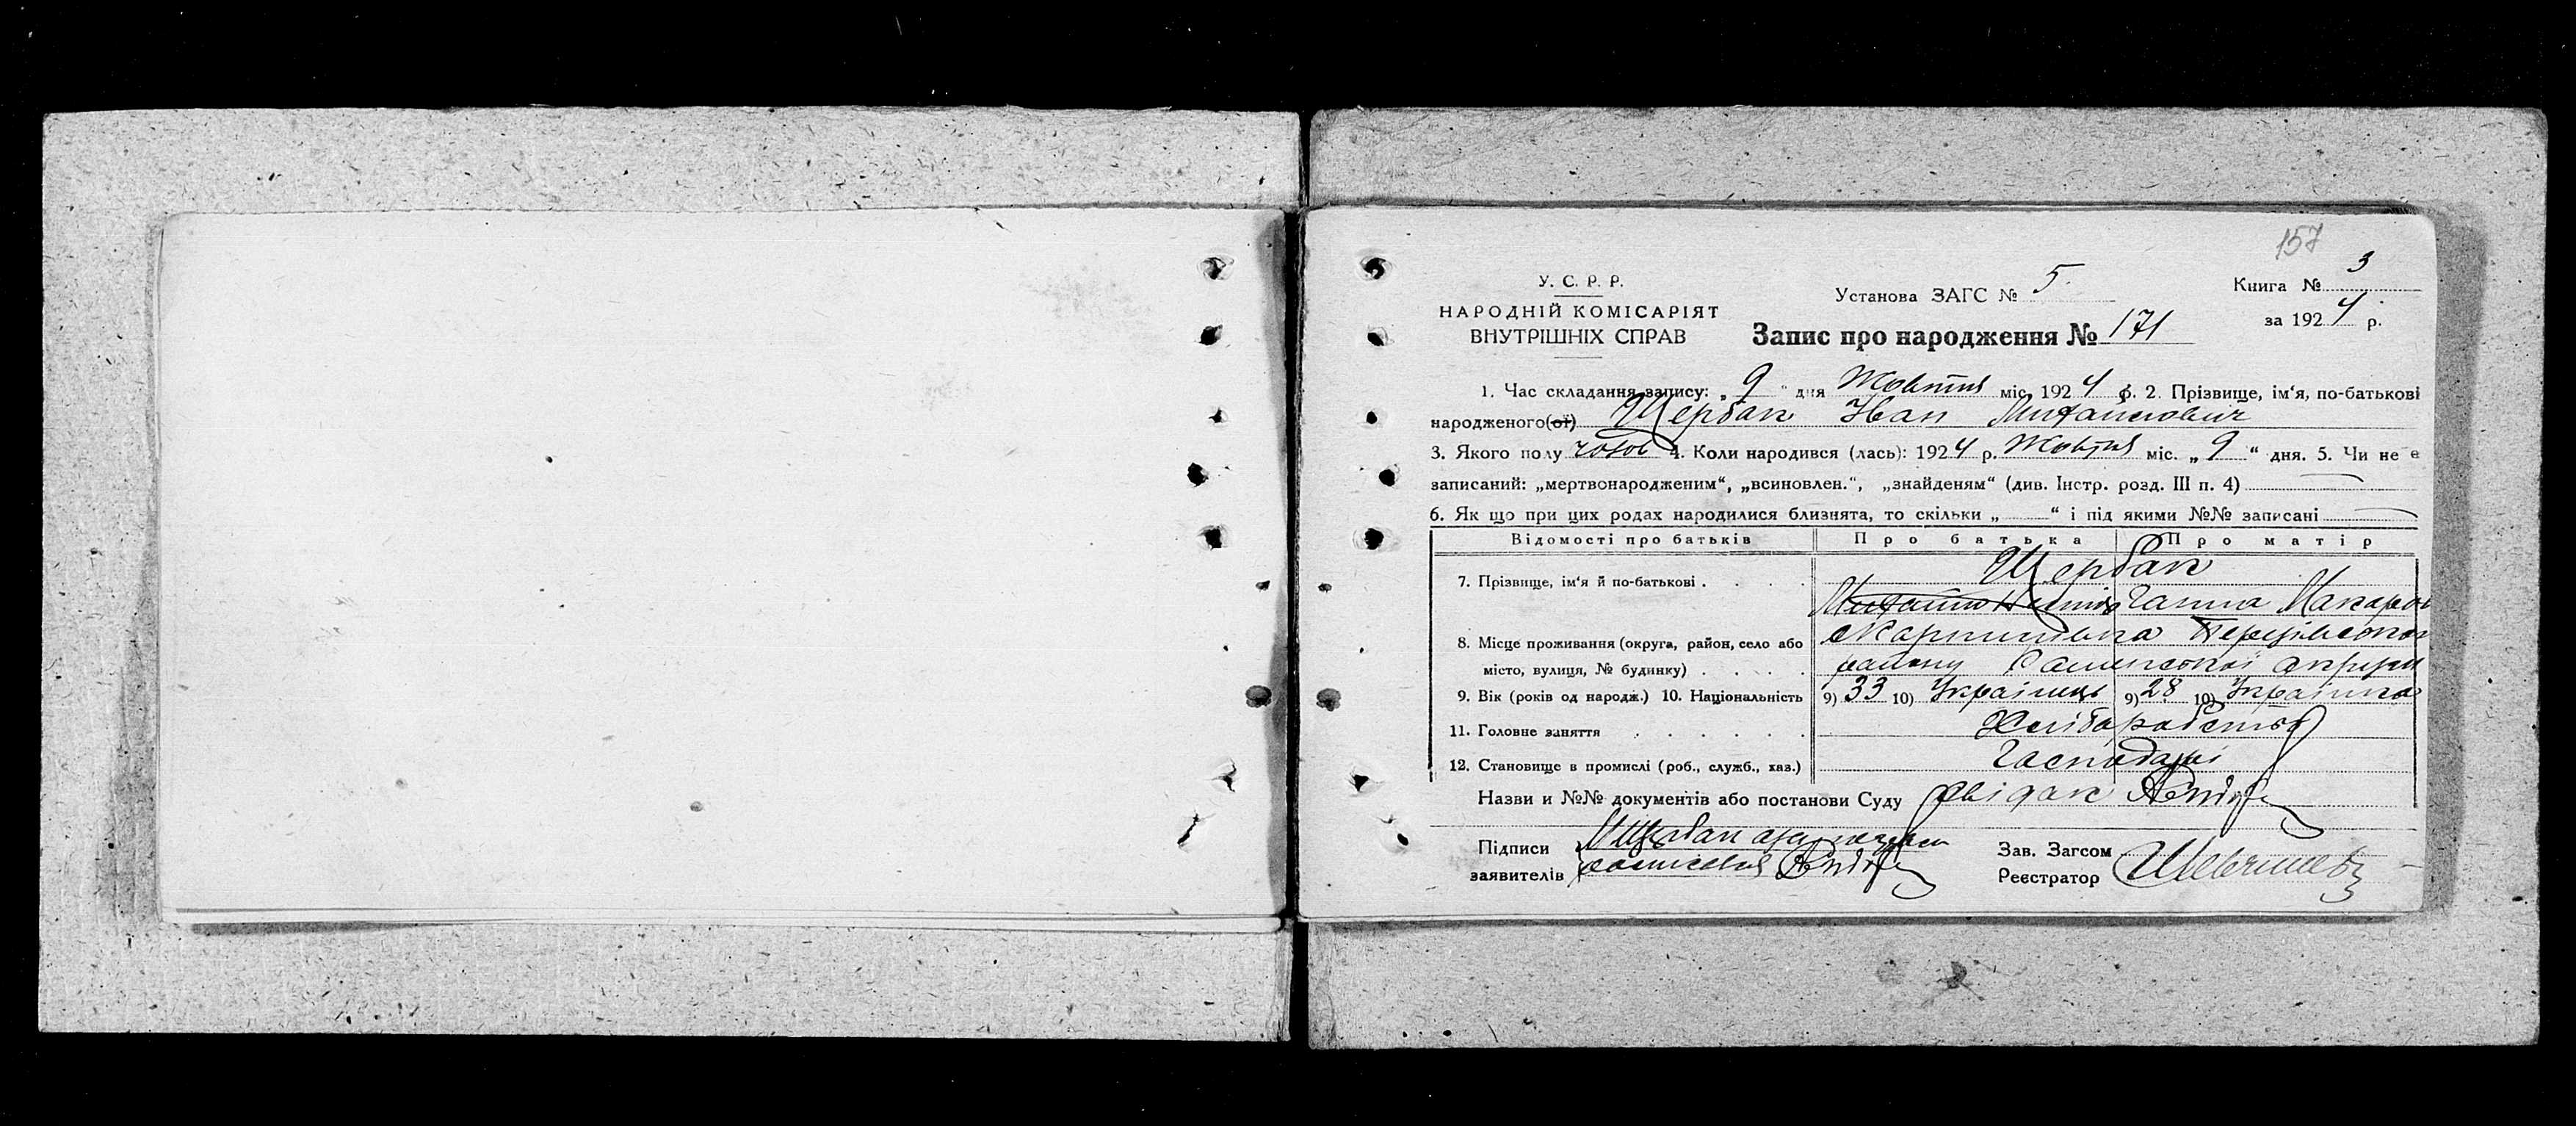 157
У. С. Р. Р.
НАРОДНІЙ КОМІСАРІЯТ
ВНУТРІШНІХ СПРАВ
Установа ЗАГС № 5
Книга № 3
за 1924 р.
Запис про народження № 171
1. Час складання запису: „9“ дня Жовтня міс. 1924 р. 2. Прізвище, ім‘я, по-батькові
народженого(ої) Щербак Іван Михайлович
3. Якого полу чолов 4. Коли народився (лась): 1924 р. Жовтня міс. „9“ дня. 5. Чи не є
записаний: „мертвонародженим“, „всиновлен.“, „знайденям“ (див. Інстр. розд. III п. 4)
6. Як що при цих родах народилися близнята, то скільки „ “ і під якими №№ записані
Відомості про батьків Про батька Про матір
7. Прізвище, ім‘я й по-батькові . . . . Щербак
Михайло Ганна Макаров
8. Місце проживання (округа, район, село або
місто, вулиця, № будинку) . . . . району Роменської округи
9. Вік (років од народж.) 10. Національність 9) 33 10) Українець 9) 28 10) Українка
11. Головне заняття . . . . . . Хліборобство
12. Становище в промислі (роб., служб., хаз.) Господарі
Назви и №№ документів або постанови Суду
Підписи
заявителів
Зав. Загсом
Реєстратор